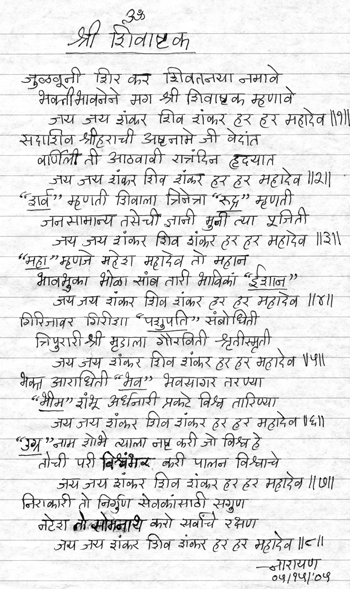 ॐ
श्री शिवाष्टक
जुळवूनी शिर कर शिवतनया नमावे
भक्तीभावनेने मग श्री शिवाष्टक म्हणावे
जय जय शंकर शिव शंकर हर हर महादेव ॥१॥
सदाशिव श्रीहराची अष्टनामे जी वेदांत
वर्णिली ती आठवावी रात्रंदिन हृदयात
जय जय शंकर शिव शंकर हर हर महादेव ॥२॥
"शर्व" म्हणती शिवाला त्रिनेत्रा "रुद्र" म्हणती
जनसामान्य तसेची ज्ञानी मुनी त्या पूजिती
जय जय शंकर शिव शंकर हर हर महादेव ॥३॥
"महा" म्हणजे महेश महादेव तो महान
भावभुका भोळा सांब तारी भाविकां "ईशान"
जय जय शंकर शिव शंकर हर हर महादेव ॥४॥
गिरिजावर गिरीशा "पशुपति" संबोधिती
त्रिपुरारी श्री मृडाला गौरविती श्रृतीस्मृती
जय जय शंकर शिव शंकर हर हर महादेव ॥५॥
भक्त आराधिती "भव" भवसागर तरण्या
"भीम" शंभू अर्धनारी प्रकटे विश्व तारिण्या
जय जय शंकर शिव शंकर हर हर महादेव ॥६॥
"उग्र" नाम शोभे त्याला नष्ट करी जो विश्व हे
तोची परी विश्वंभर करी पालन विश्वाचे
जय जय शंकर शिव शंकर हर हर महादेव ॥७॥
निराकारी तो निर्गुण सेवकांसाठी सगुण
नटेश तो सोमनाथ करो सर्वांचे रक्षण
जय जय शंकर शिव शंकर हर हर महादेव ॥८॥
नारायण